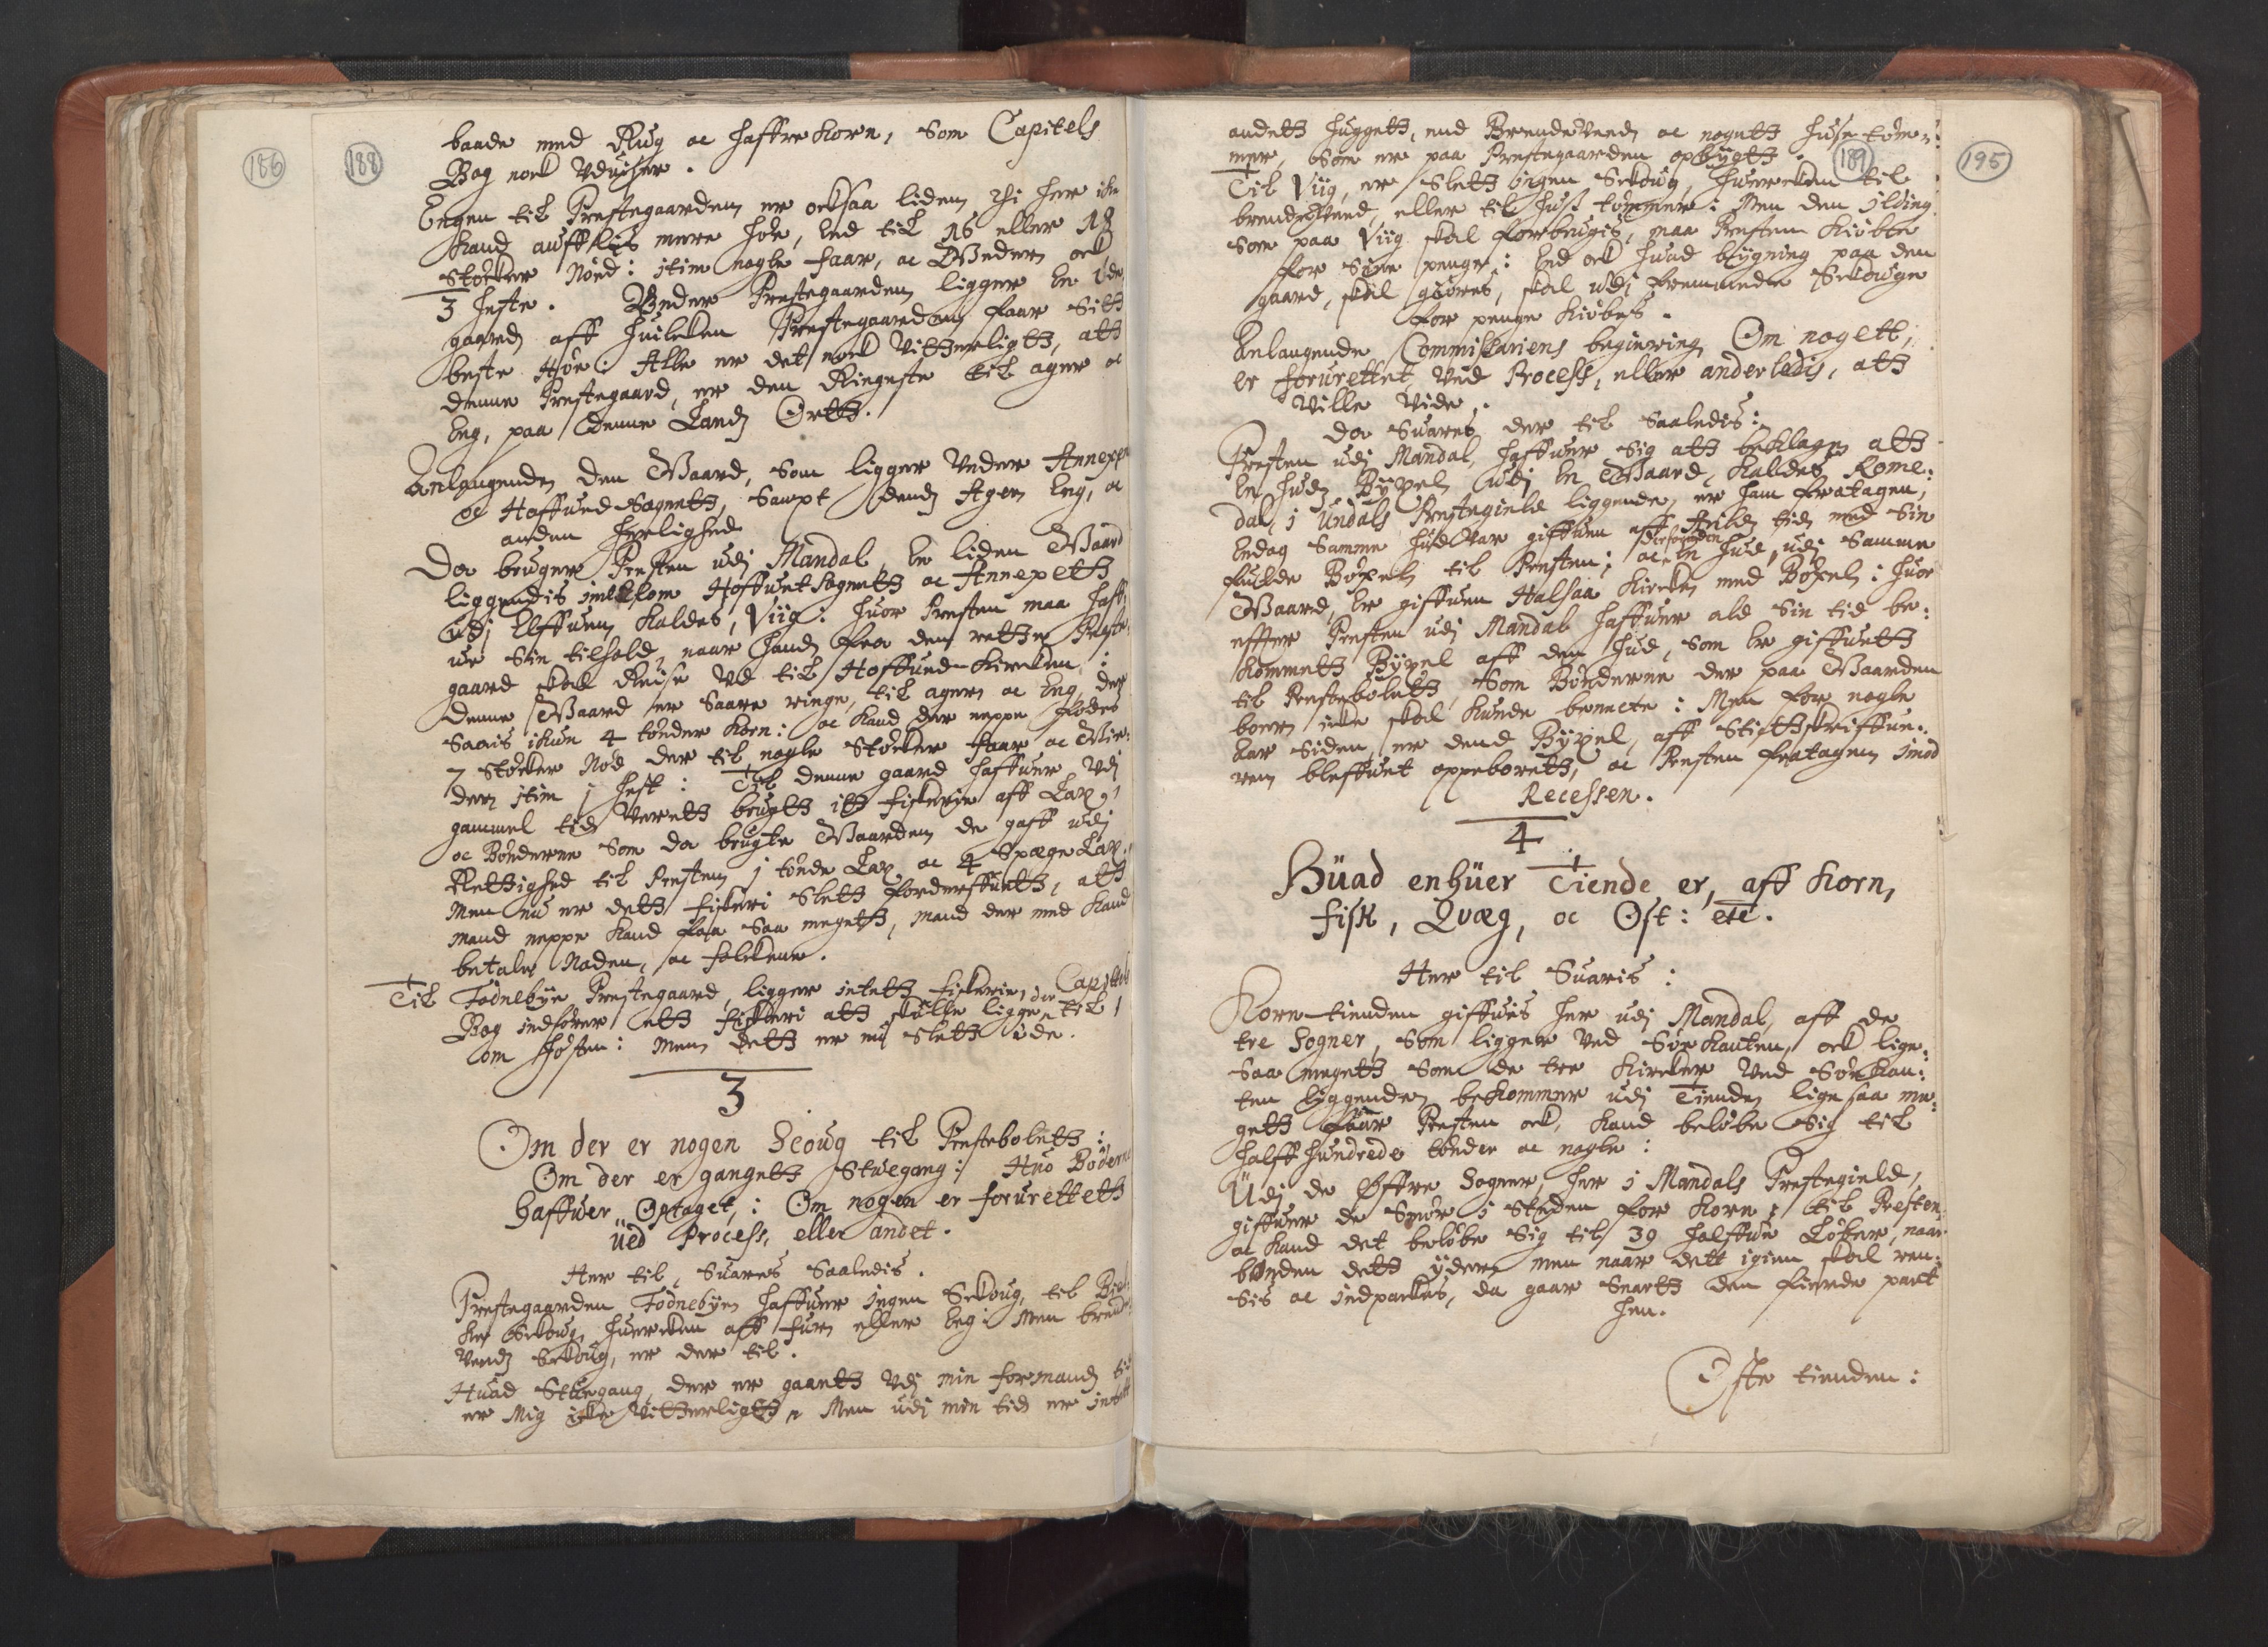 186
188
baade med Rug oc haffrekorn, som Capitels
Bog nock Uduiser.
Engen til Prestegaarden er ocksaa liden, thi her icke
kand aufflis mere höe, end til 16 eller 18
støcker Nöed: item nogle faar, oc Beder, ock
3 heste. Under Prestegaarden ligger en öde
gaard, aff huilcken Prestegaarden faar sitt
beste Höe: Alle er det nock vitterligtt, att
denne Prestegaard, er den Ringeste till ager oc
Eng, paa denne Landz Ortt.
Anlangende den Gaard, som ligger Under Annexen
oc Hoffued Sognett, sampt dend Ager, Eng, oc
anden herlighed
Da bruger Presten udj Mandal, en liden Gaard
liggendis imellom Hoffuet Sognett oc Annexett
Udj Elffuen, kaldes, Viig: huor Presten maa haff-
ue sin tilhold, naar hand fra den rette Preste-
gaard skal Reise Ud til Hoffued-Kircken:
denne Gaard er saare ringe, til ager oc Eng, der
saais ikun 4 tönder korn: oc kand der neppe födes
7 støcker Nöd, der til nogle støcker faar oc Gie-
der, item j hest: Til denne gaard haffuer Udj
gammel tid verett brugtt itt fiskerie aff Lax,
oc Bönderne som da brugte Gaarden de gaff udj
Rettighed til Presten j tönde Lax, oc 4 spege Lax.
Men nu er dett fiskeri slett forderffuett, att
mand neppe kand faa saa megett, mand der med kand
betale Noden, oc folckene.
Til Födnebye Prestegaard, ligger intett fiskerie, der Capitels
Bog indförer ett fiskeri att skulle ligge til,
om hösten: Men dett er nu slett öde.
3
Om der er nogen Scoug till Prestebolett:
Om der er gangett Stuegang: Huo Böderne
haffuer Optaget,: Om nogen er foruretteth
üed Process, eller andet.
Her til Suares Saaledis.
Prestegaarden Födnebye haffuer ingen Schoug, til Biel-
ke Schoug, huercken aff fur eller Eeg: Men brende
Vend schoug, er der til.
Huad Stuegang, der er gaantt Udj min formandz tid
er Mig icke vitterligtt, Men udj min tid er intett
189
195
andett huggett, end Brendeveed, oc nogett huse töm-
mer, som er paa Prestegaarden opbygtt.
Til Viig, er slett ingen Schoug, huercken til
brendeveed, eller til huss tömmer: Men den ilding
som paa Viig skal forbrugis, maa Presten kiöbe
for sine penge: End ock huad bygning paa den
gaard, skal giöres, skal udj fremmede Schouge
for penge kiöbes.
Anlangende Commissariens begiering Om nogett,
er forurettet, Ved Process, eller anderledis, att
ville vide,
da Suares der til Saaledis:
Presten udj Mandal, haffuer sig att beklage, att
En huds Byxel, udj En Gaard, kaldes Rome-
dal, i Undals Prestegield liggende, er ham fratagen,
Endog samme hud var giffuen aff Arilds tid med sin
fulde Böxel til Presten; oc En hud, udj samme
Gaard, Er giffuen Halsaa Kircke med Böxel: huor
effter Presten udj Mandal haffuer ald sin tid be-
kommett Byxel aff den hud, som er giffuett
til Prestebolett, som Bönderne der paa Gaarden
boer, icke skal kunde benecte: Men for nogle
Aar siden, er dend Byxel, aff Stigttskriffue-
ren bleffuet oppeborett, oc Presten fratagen imod
Recessen.
4
Hüad enhüer Tiende er, aff Korn,
fisk, Qvæg, oc Ost: etc.
Her til Suaris:
Korntienden giffuis her udj Mandal, aff de
tre Sogner, som ligger Ved Sörkanten, ock lige-
saa megett som de tre Kircker Ved Sörkan-
ten liggende, bekommer udj Tiende, lige saa me-
gett faar Presten ock, kand belöbe sig til
halff hundrede tönder oc nogle:
Udj de Öffre Sogner, her i Mandals Prestegield,
giffuer de Smör i steden for Korn, til Presten,
oc kand det belöbe sig til 39 halffue Löber, naar
bonden dett yder, men naar dett igien skal ven-
sis oc indpackes, da gaar snartt den fierde part
hen.
Oste tienden: